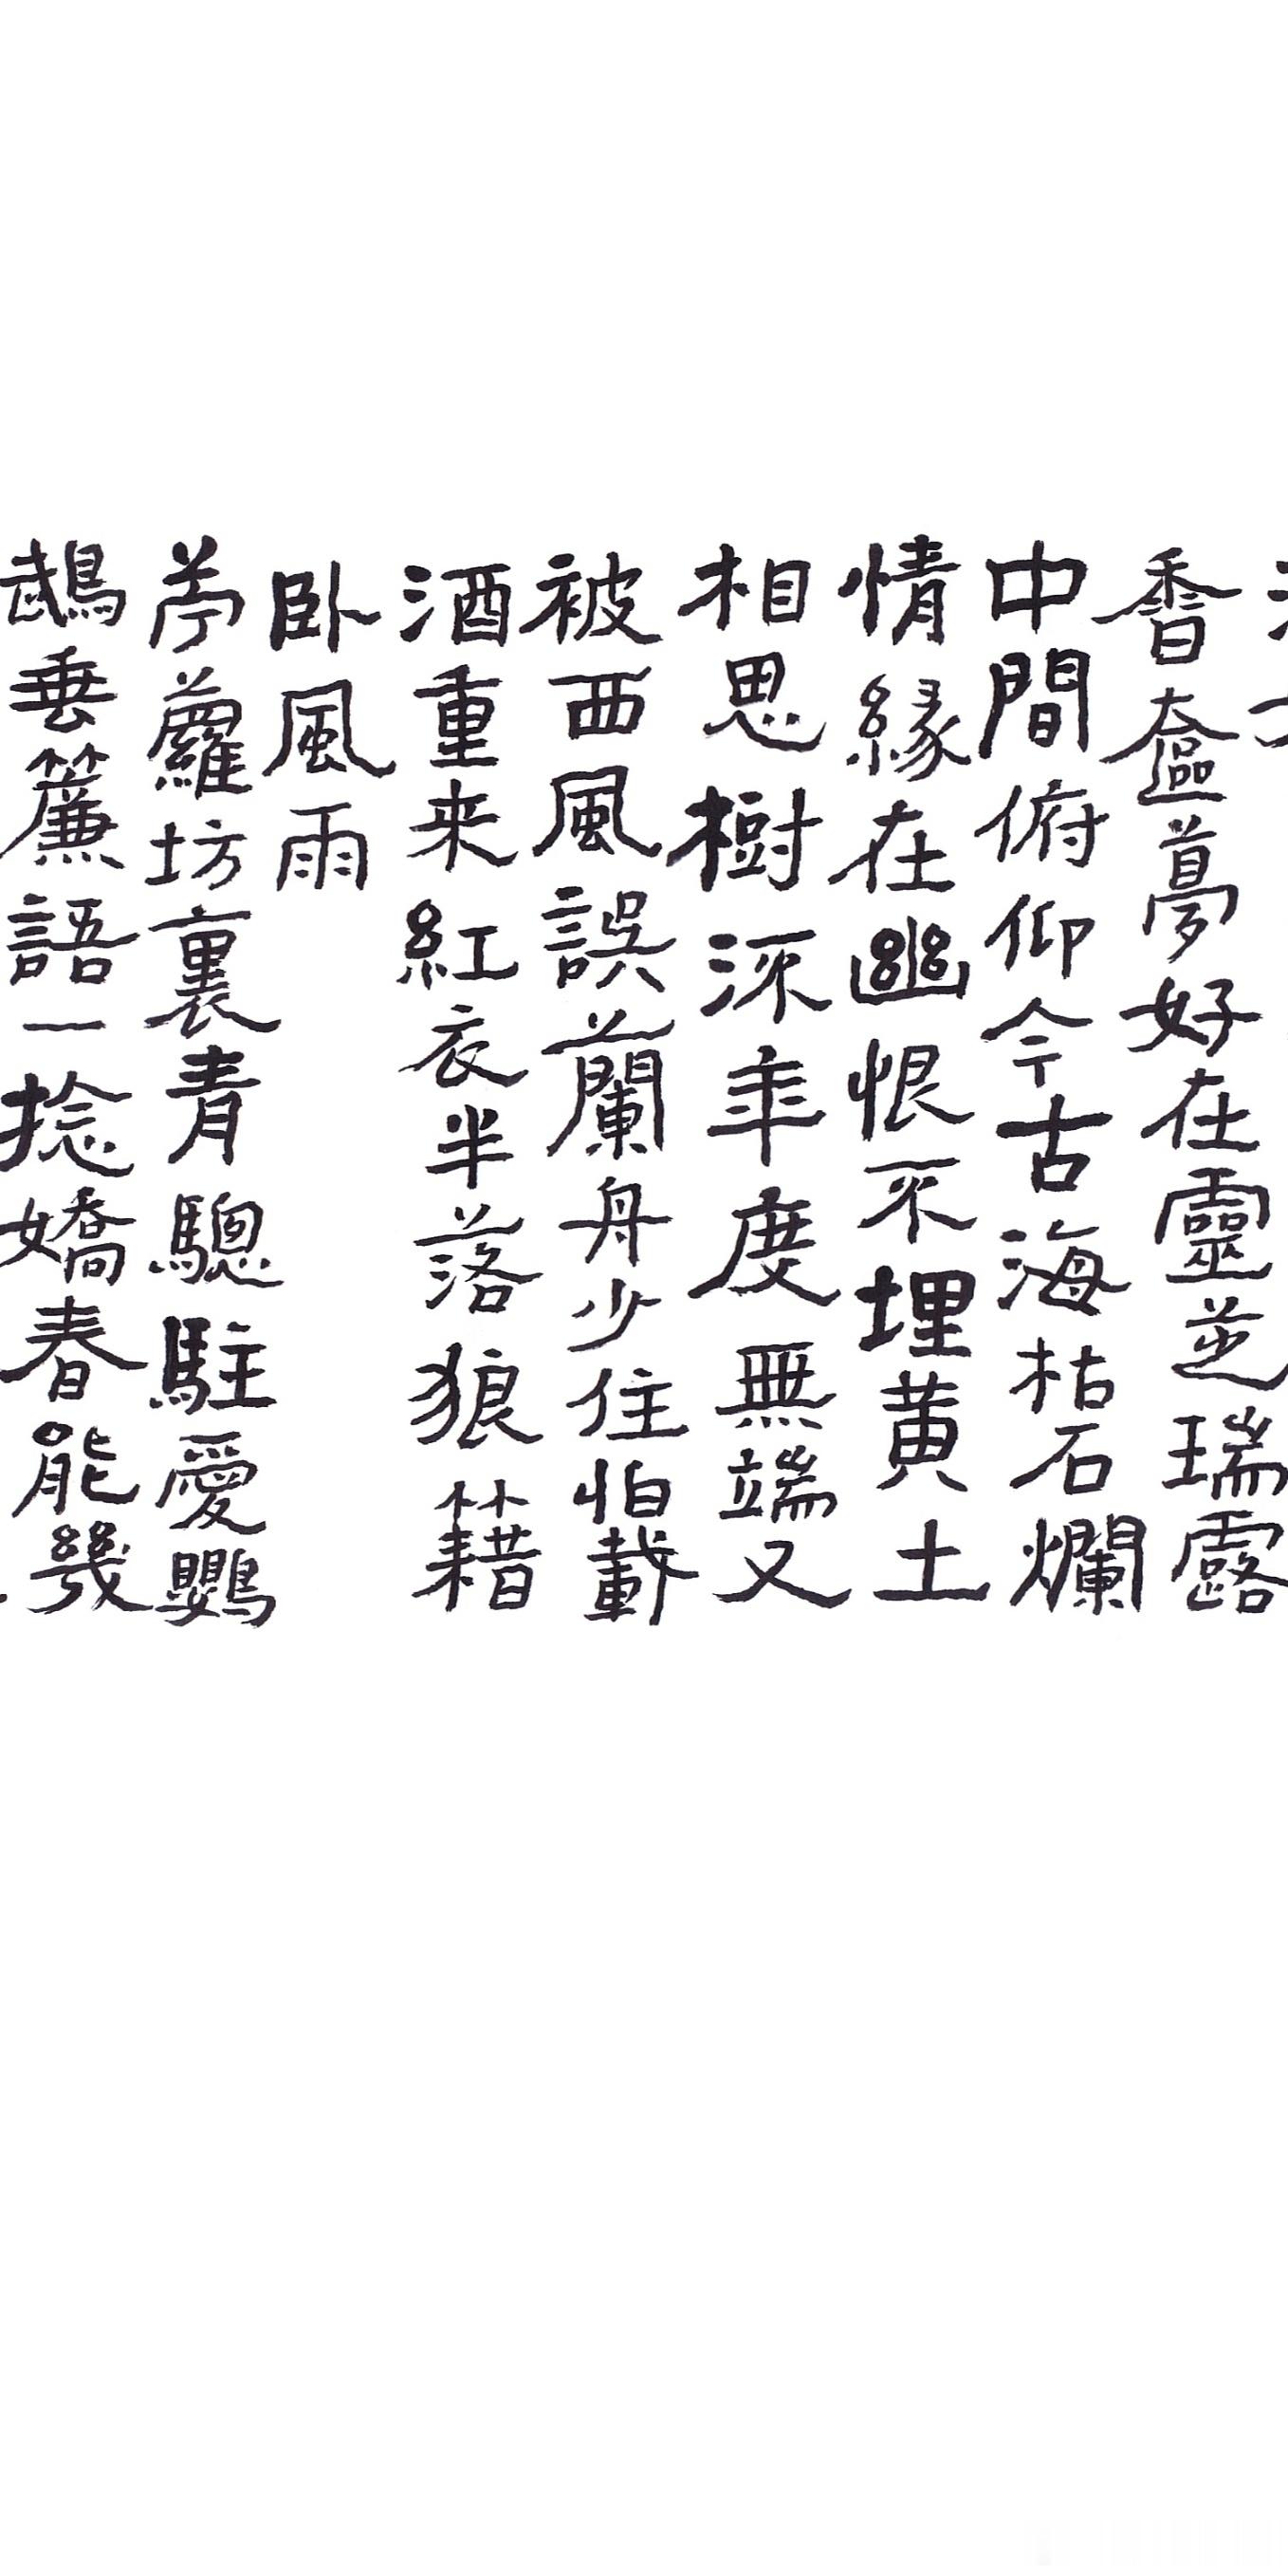 香奩夢好在靈芝瑞露
中間俯仰今古海枯石爛
情緣在幽恨不埋黄土
相思樹流年度無端又
被西風誤蘭舟少住怕載
酒重来紅衣半落狼籍
卧風雨
苧蘿坊裏青驄駐愛鸚
鵡垂簾語一捻嬌春能幾